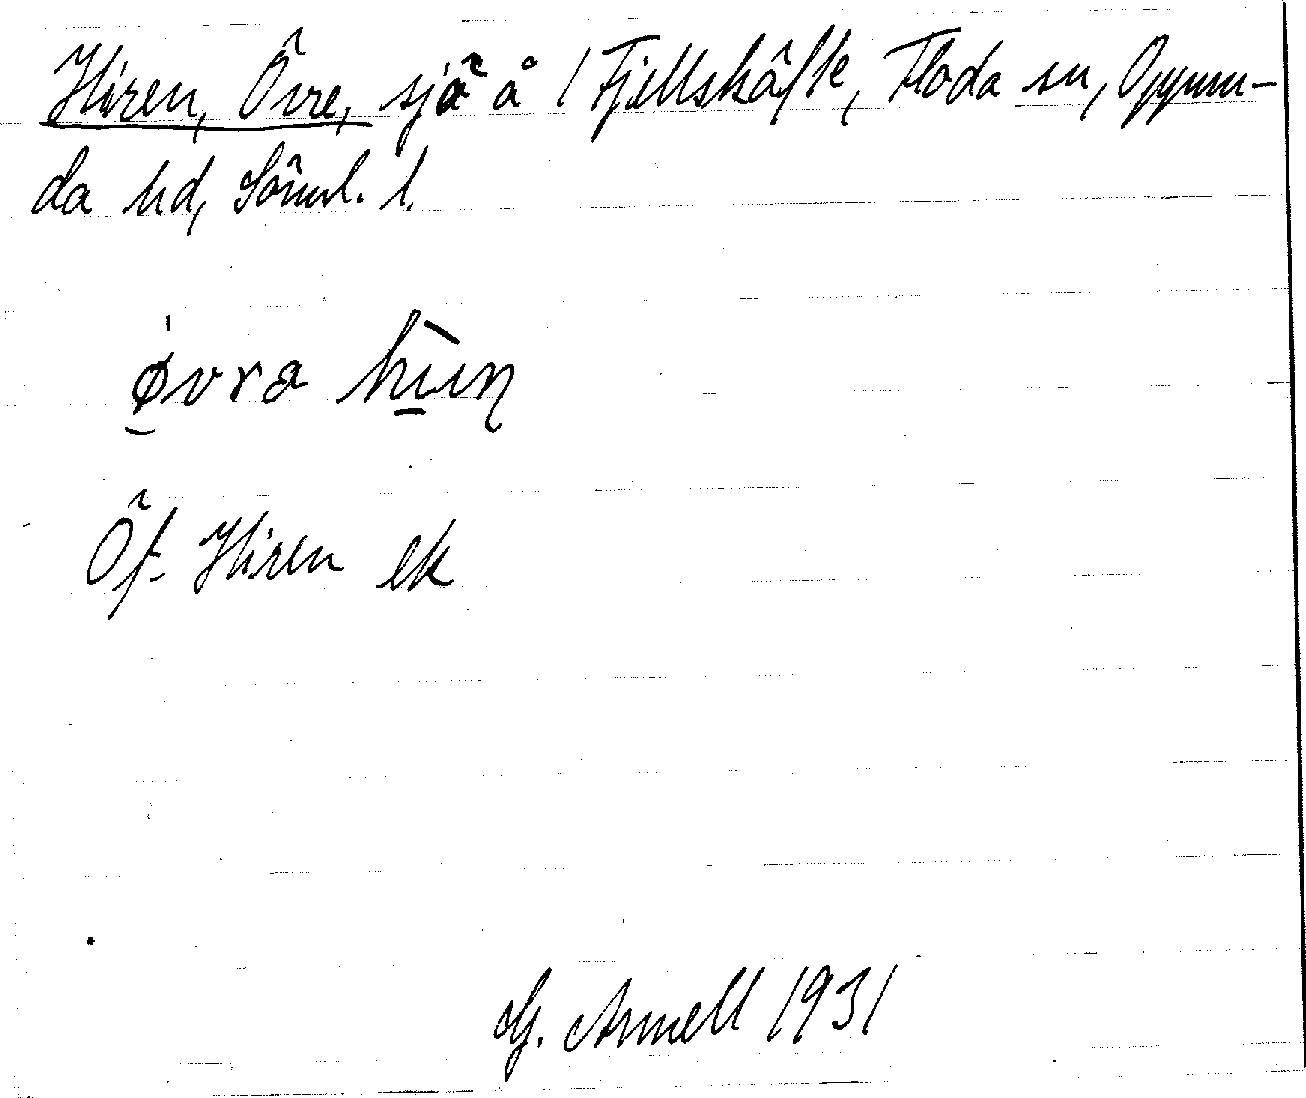 Hiren, Övre, sjö å 1 Fjellskäfte, Floda sn, Oppun-
da hd, Söml. l.
øvra
Öf. Hiren ek
G. Annell 1931